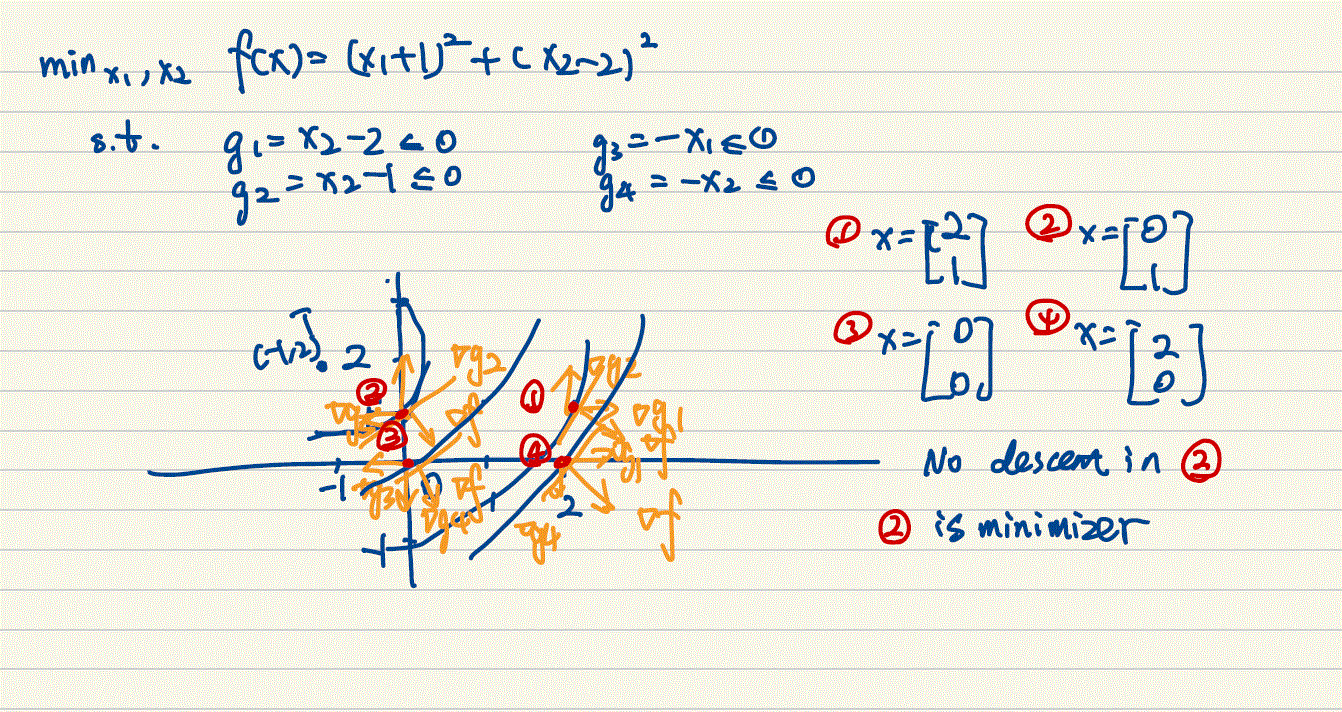 min x₁,x₂ f(x) = (x₁+1)² + (x₂-2)²
s.t. g₁ = x₂-2 ≤ 0 g₃ = -x₁ ≤ 0
g₂ = x₂-1 ≤ 0 g₄ = -x₂ ≤ 0
① x = [2 1] ② x = [0 1]
③ x = [0 0] ④ x = [2 0]
(-1,2) 2
∇g₂ ∇g₂
② ①
∇f ∇g₁
③ ④ ∇f
-1 0 1 2
∇g₃ ∇g₄ ∇f g₄ ∇f
-1
No descent in ②
② is minimizer